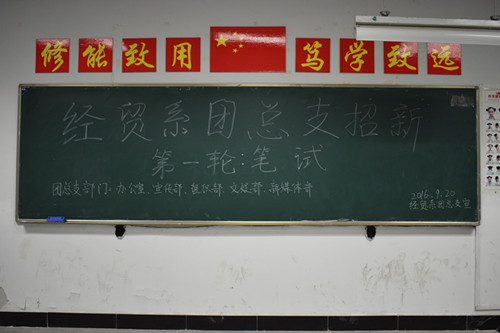 修能致用 笃学致远
经贸系团总支招新
第一轮:笔试
团总支部门:办公室、宣传部、组织部、文娱部、新媒体部
2016.9.20
经贸系团总支宣